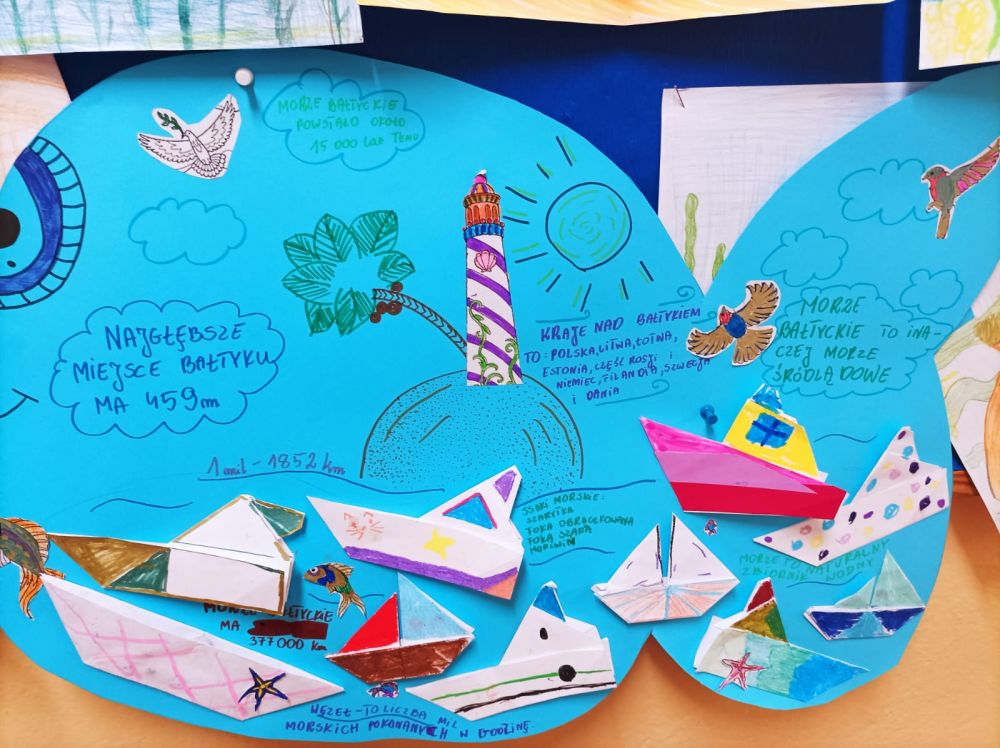 MORZE BAŁTYCKIE
POWSTAŁO OKOŁO
15 000 lat TEMU
NAJGŁĘBSZE
MIEJSCE BAŁTYKU
MA 459m
KRAJE NAD BAŁTYKIEM
TO: POLSKA, LITWA, ŁOTWA,
ESTONIA, CZĘŚĆ ROSJI i
NIEMIEC, FILANDIA, SZWECJA
i DANIA
MORZE
BAŁTYCKIE TO INA-
CZEJ MORZE
ŚRÓDLĄDOWE
1 mil - 1852 km
SSAKI MORSKIE:
SZARYTKA
FOKA OBRĄCZKOWANA
FOKA SZARA
MORŚWIN
MORZE TO NATURALNY
ZBIORNIK WODNY
MORZE BAŁTYCKIE
MA
377000 Km
WĘZEŁ - TO LICZBA MIL
MORSKICH POKONANYCH W GODZINĘ.